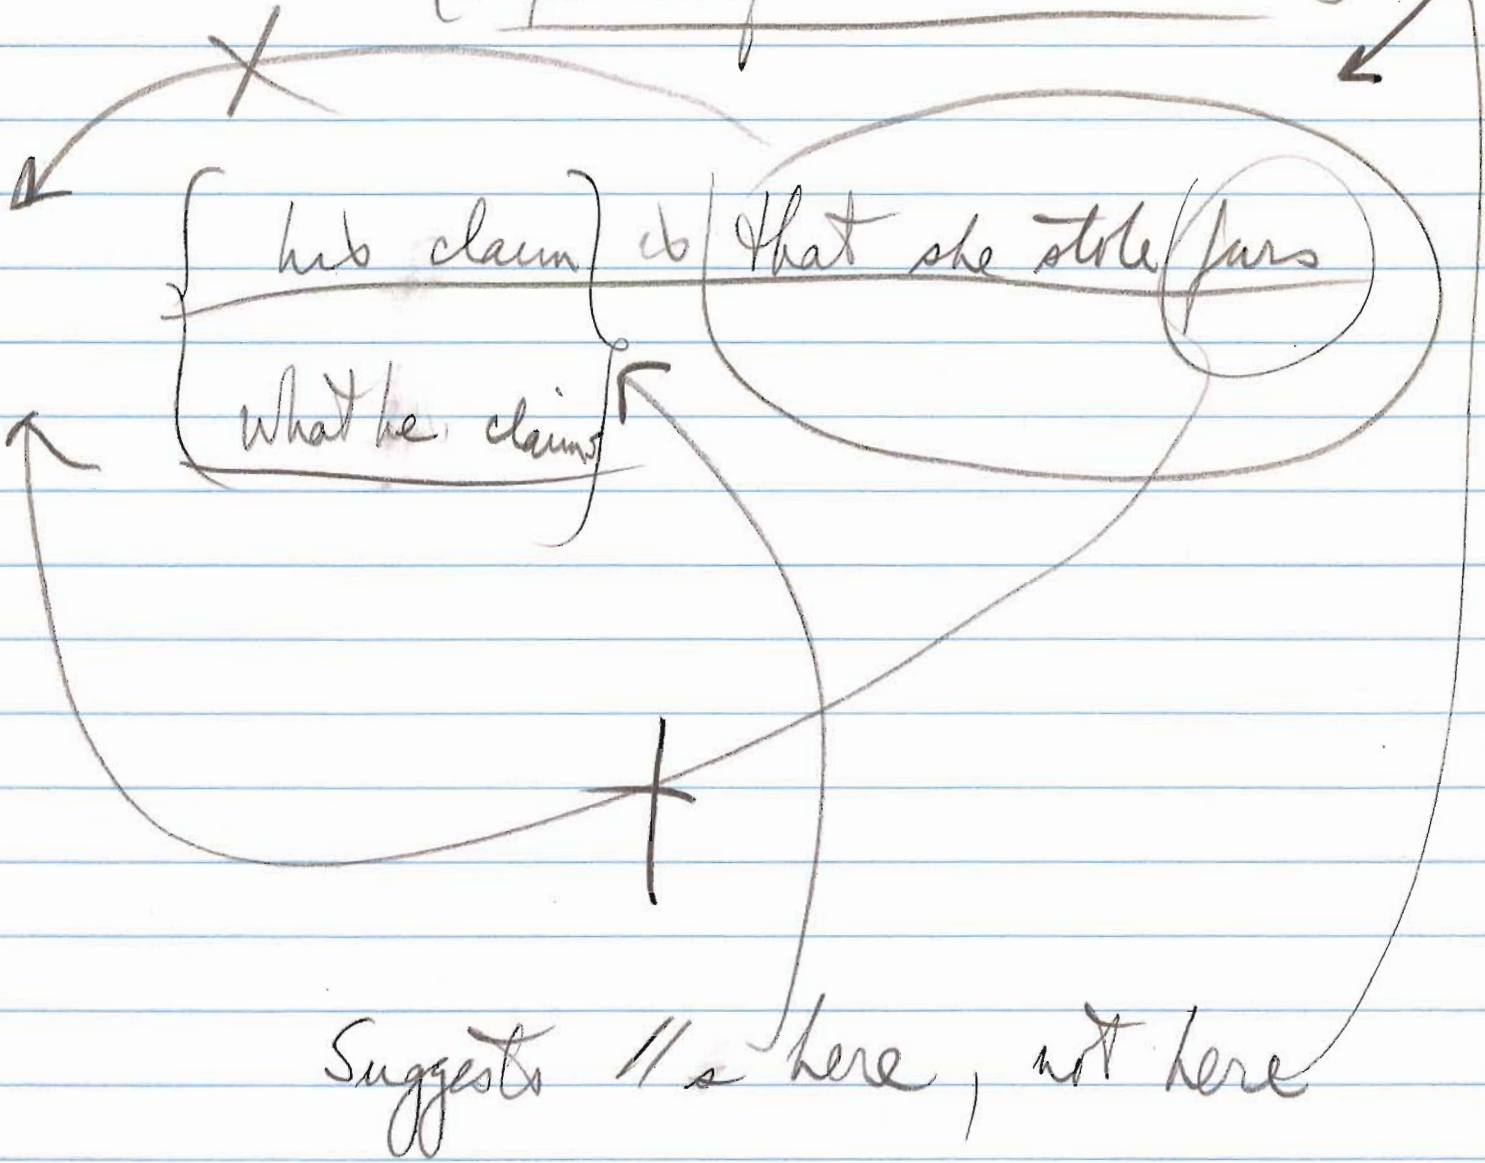 his claim is that she stole furs
what he claims
Suggests //s here, not here